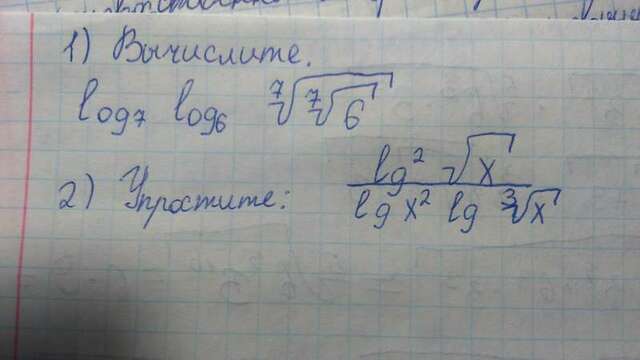 1) Вычислите.
log₇ log₆ ⁷√(⁷√6)
2) Упростите: (lg² √x)/(lg x² lg ³√x)